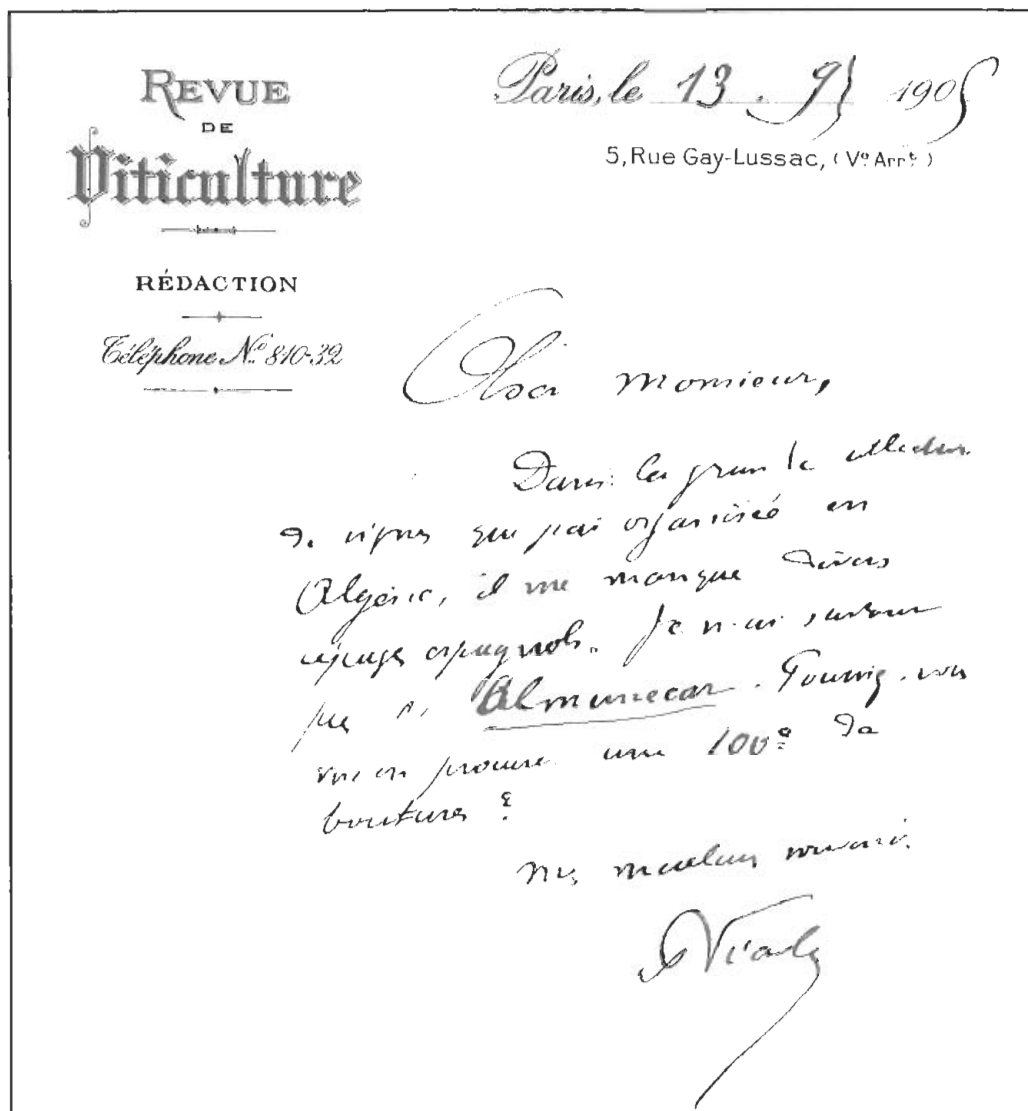 REVUE
DE
Viticulture
RÉDACTION
Téléphone N.º 810-32
Paris, le 13 . 9 1905
5, Rue Gay-Lussac, (Vº Arrt)
Cher Monsieur,
Dans la grande collection
de vignes que j'ai organisé en
Algérie, il me manque divers
cépages espagnols. Je n'ai surtout
pas d' Almunecar. Pouvez-vous
m'en procurer une 100º de
boutures ?
Mes meilleurs souvenirs.
P Viala